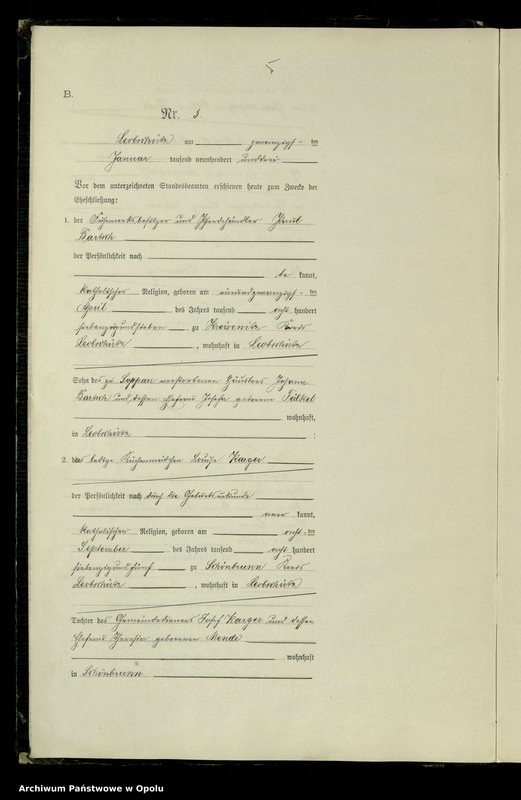 B.
Nr. 5.
Leobschütz am zwanzigsten
Januar tausend neunhundert unddrei
Vor dem unterzeichneten Standesbeamten erschienen heute zum Zwecke der
Eheschließung:
1. der Fuhrwerksbesitzer und Pferdehändler Paul
Bartsch
der Persönlichkeit nach
be kannt,
katholischer Religion, geboren am einundzwanzigsten
April des Jahres tausend acht hundert
siebenzigundsieben zu Kreisewitz Kreis
Leobschütz, wohnhaft in Leobschütz
Sohn des zu Soppau verstorbenen Häuslers Johann
Bartsch und dessen Ehefrau Josefa geborene Fülkel
wohnhaft,
in Leobschütz :
2. die ledige Küchenmädchen Louise Karger
der Persönlichkeit nach durch die Geburtsurkunde
aner kannt,
katholischer Religion, geboren am achten
September des Jahres tausend acht hundert
siebenzigundfünf zu Schönbrunn Kreis
Leobschütz, wohnhaft in Leobschütz
Tochter des Gemeindedieners Josef Karger und dessen
Ehefrau Theresia geborenen Mende
wohnhaft
in Schönbrunn
Archiwum Państwowe w Opolu